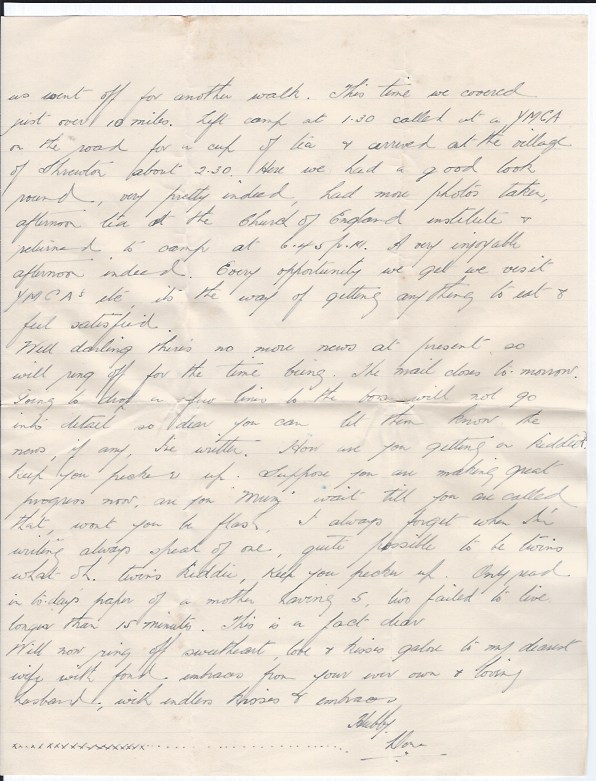 us went off for another walk. This time we covered
just over 10 miles. Left camp at 1.30 called at a YMCA
on the road for a cup of tea & arrived at the village
of Shrewton about 2.30. Here we had a good look
round, very pretty indeed, had more photos taken,
afternoon tea at the Church of England institute &
returned to camp at 6.45 p.m. A very injoyable
afternoon indeed. Every opportunity we get we visit
YMCAs etc, it's the way of getting anything to eat &
feel satisfied.
Well darling there's no more news at present so
will ring off for the time being. The mail closes to-morrow.
Going to drop a few lines to the will not go
into detail so dear you can let them know the
news, if any, I've written. How are you getting on kiddie,
keep you pecker up. Suppose you are making great
progress now, are you "Mum" wait till you are called
that, wont you be flash, I always forget when I'm
writing always speak of one, quite possible to be twins
what oh. twins kiddie, keep you pecker up. Only read
in to-days paper of a mother having 5, two failed to live
longer than 15 minutes. This is a fact dear
Will now ring off sweetheart love & kisses galore to my dearest
wife with fond embraces from your ever own & loving
husband, with endless kisses & embraces
Hubby